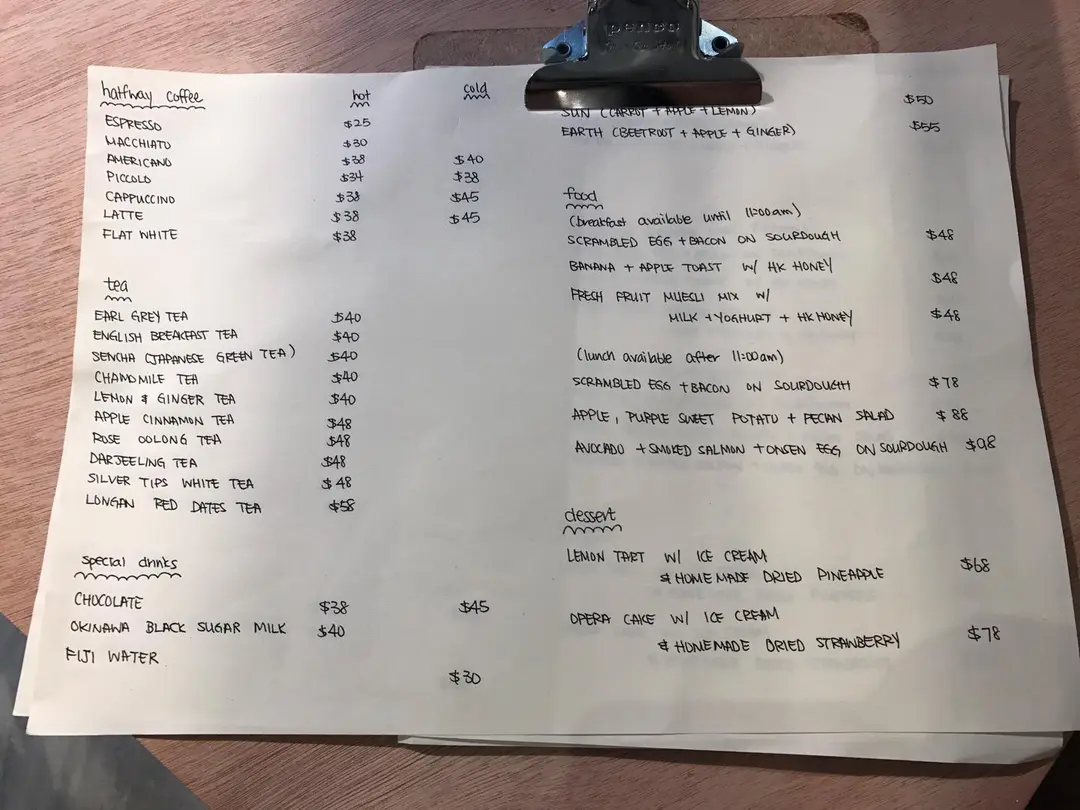 penco
halfway coffee hot cold
ESPRESSO $25
MACCHIATO $30
AMERICANO $38 $40
PICCOLO $34 $38
CAPPUCCINO $38 $45
LATTE $38 $45
FLAT WHITE $38
tea
EARL GREY TEA $40
ENGLISH BREAKFAST TEA $40
SENCHA (JAPANESE GREEN TEA) $40
CHAMOMILE TEA $40
LEMON & GINGER TEA $40
APPLE CINNAMON TEA $48
ROSE OOLONG TEA $48
DARJEELING TEA $48
SILVER TIPS WHITE TEA $48
LONGAN RED DATES TEA $58
special drinks
CHOCOLATE $38 $45
OKINAWA BLACK SUGAR MILK $40
FIJI WATER $30
SUN (CARROT + APPLE + LEMON) $50
EARTH (BEETROOT + APPLE + GINGER) $55
food
(breakfast available until 11:00am)
SCRAMBLED EGG + BACON ON SOURDOUGH $48
BANANA + APPLE TOAST W/ HK HONEY $48
FRESH FRUIT MUESLI MIX W/
MILK + YOGHURT + HK HONEY $48
(lunch available after 11:00am)
SCRAMBLED EGG + BACON ON SOURDOUGH $78
APPLE, PURPLE SWEET POTATO + PECAN SALAD $88
AVOCADO + SMOKED SALMON + ONSEN EGG ON SOURDOUGH $98
dessert
LEMON TART W/ ICE CREAM
& HOMEMADE DRIED PINEAPPLE $68
OPERA CAKE W/ ICE CREAM
& HOMEMADE DRIED STRAWBERRY $78